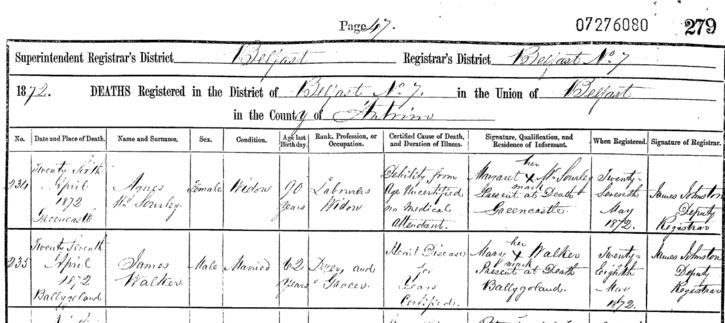 Page 47. 07276080 279
Superintendent Registrar's District Belfast Registrar's District Belfast No 7
1872. DEATHS Registered in the District of Belfast No 7. in the Union of Belfast
in the County of Antrim
No. Date and Place of Death. Name and Surname. Sex. Condition. Age last Birthday. Rank, Profession, or Occupation. Certified Cause of Death, and Duration of Illness. Signature, Qualification, and Residence of Informant. When Registered. Signature of Registrar.
234 Twenty Sixth April 1872 Greencastle Agnes Female Widow 90 Years Labourers Widow Debility from Age Uncertified no Medical attendant. Margaret her x mark Present at Death Greencastle Twenty Seventh May 1872. James Johnston Deputy Registrar
235 Twenty Seventh April 1872 Ballygoland James Walker Male Married 62 Years and Grocer Heart Disease Years Certified. Mary her x mark Walker Present at Death Ballygoland. Twenty Eighth May 1872. James Johnston Deputy Registrar